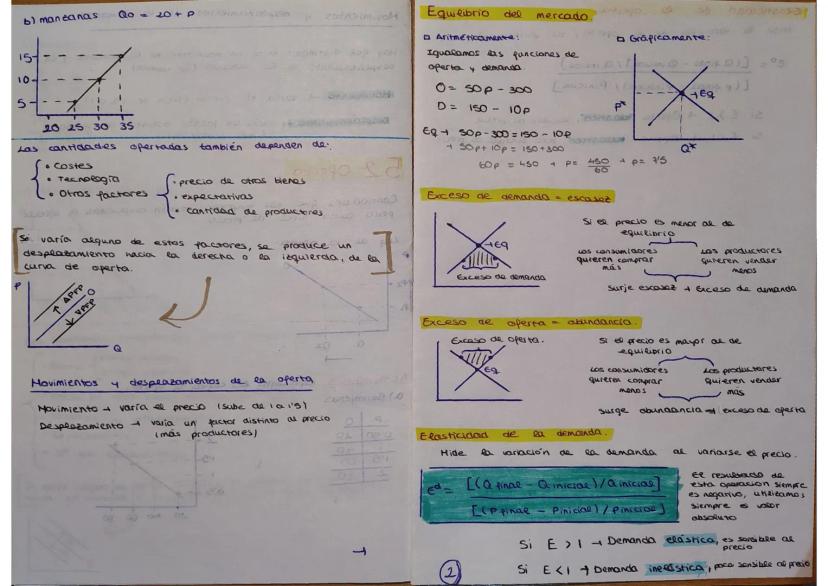 b) manzanas Qo = 20 + P
15
10
5
20 25 30 35
Las cantidades ofertadas también dependen de:
• Costes
• Tecnología
• Otros factores
• precio de otros bienes
• expectativas
• cantidad de productores
Si varía alguno de estos factores, se produce un
desplazamiento hacia la derecha o la izquierda, de la
curva de oferta.
P
O
Q
Movimientos y desplazamientos de la oferta
Movimiento → varía el precio (sube de 1 a 1'5)
Desplazamiento → varía un factor distinto al precio
(más productores)
Equilibrio del mercado.
Aritméticamente:
Igualamos las funciones de
oferta y demanda.
O = 50p - 300
D = 150 - 10p
EQ → 50p - 300 = 150 - 10p
→ 50p + 10p = 150 + 300
60p = 450 → P = 450/60 → P = 7'5
Gráficamente:
P*
EQ
Q*
Exceso de demanda = escasez
EQ
Exceso de demanda
Si el precio es menor al de
equilibrio
Los consumidores
quieren comprar
más
Los productores
quieren vender
menos
Surje escasez → Exceso de demanda
Exceso de oferta = abundancia.
Exceso de oferta.
EQ
Si el precio es mayor al de
equilibrio
Los consumidores
quieren comprar
menos
Los productores
quieren vender
más
Surge abundancia → exceso de oferta
Elasticidad de la demanda.
Mide la variación de la demanda al variarse el precio.
Eᵈ = [(Q final - Q inicial) / Q inicial]
[(P final - P inicial) / P inicial]
El resultado de
esta operación siempre
es negativo, utilizamos
siempre el valor
absoluto
Si E > 1 → Demanda elástica, es sensible al
precio
Si E < 1 → Demanda inelástica, poco sensible al precio
2